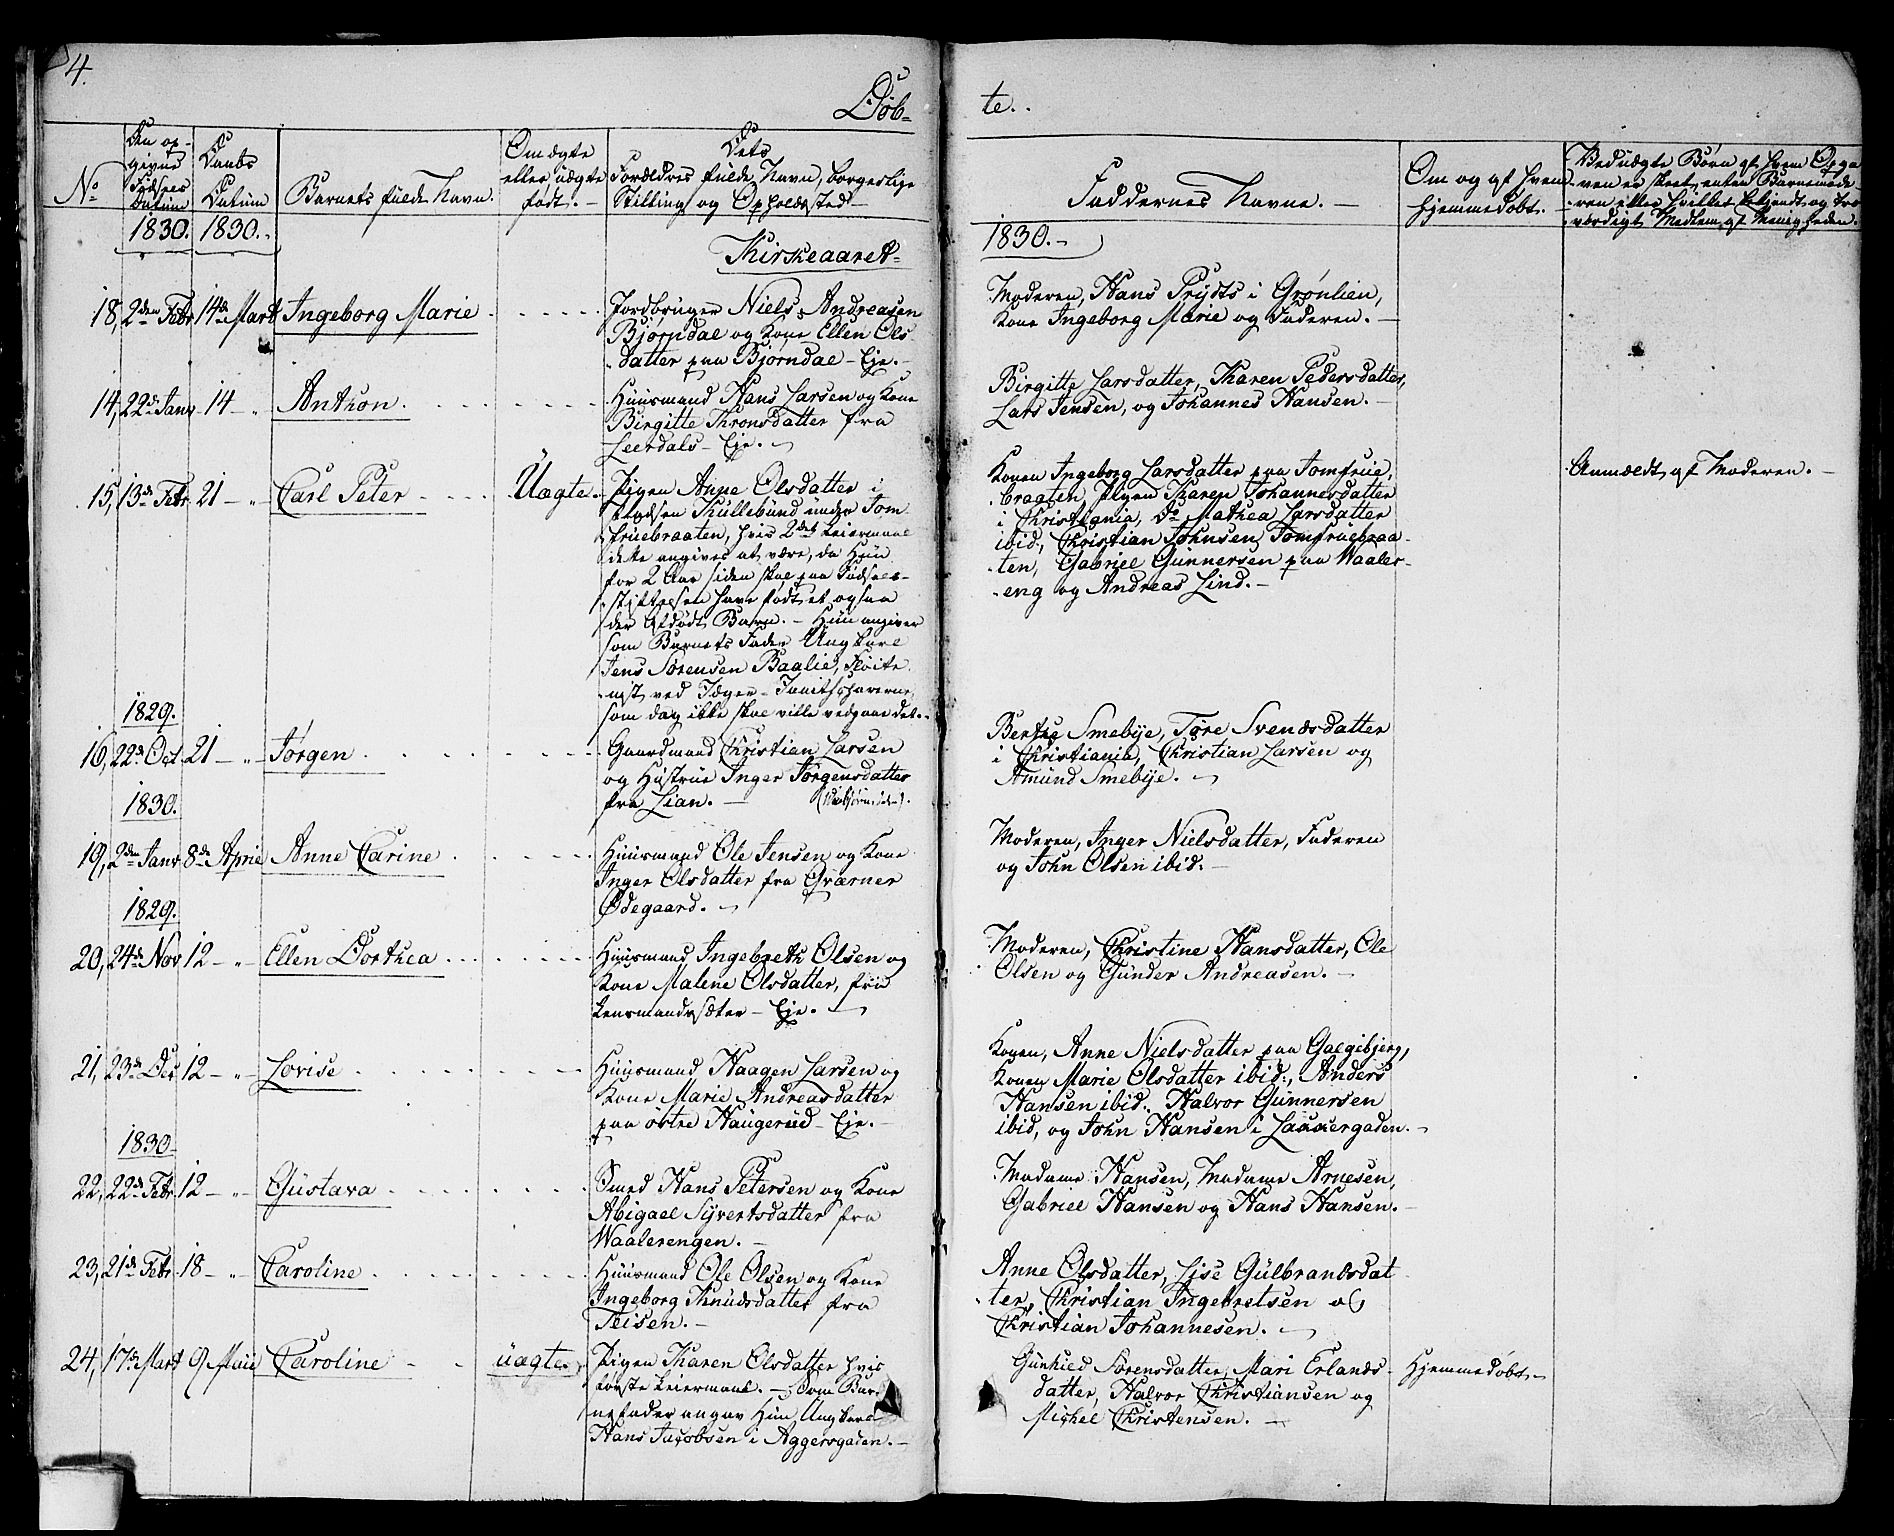 4.
Døb-
te.
No
Den op-
givne
Fødsels
Datum
Daabs
Datum
Barnets fulde Navn.
Om ægte
eller uægte
født.-
Dets
Forældres fulde Navn, borgerlige
Stilling og Opholdssted-
Faddernes Navne.-
Om og af hvem
hjemmedøbt.-
Ved uægte Børn af hvem Opga
ven er skeet, enten Barnemode-
ren eller hvilket bekjendt og tro
værdigt Medlem af Menigheden.
1830. 1830.
Kirkeaaret-
1830.-
18, 2den Febr 14de Mart Ingeborg Marie
Jordbruger Niels Andreasen
Bjørndal og Kone Ellen Ols
datter paa Bjørndal-Eje.-
Moderen, Hans Prydts i Grønlien,
Kone Ingeborg Marie og Faderen.-
14, 22de Janr 14-" Anthon.
Huusmand Hans Larsen og Kone
Birgitte Thronsdatter fra
Leerdals-Eje.-
Birgitte Larsdatter, Karen Pedersdatter,
Lars Jensen, og Johannes Hansen.-
15, 13de Febr 21-" Carl Peter Uægte.
Pigen Anne Olsdatter i
Pladsen Kullebund under Jom
fruebraaten, hvis 2det Leiermaal
dette angives at være, da Hun
for 2 Aar siden skal paa Fødsels-
stiftelsen have født et, ogsaa
der afdødt Barn.- Hun angiver
som Barnets Fader Ungkarl
Jens Sørensen Baalie, Fløite
nist ved Jæger-Janitscharerne,
som dog ikke skal ville vedgaae det.-
Konen Ingeborg Larsdatter paa Jomfrue,
bragten, Pigen Karen Johannesdatter
i Christiania, Do Mathea Larsdatter
ibid., Christian Johnsen Jomfruebraa-
ten, Gabriel Gunnersen paa Waaler-
eng og Andreas Lind.-
Anmældt af Moderen.-
1829.
16, 22de Oct 21-" Jørgen
Gaardmand Christian Larsen
og Hustrue Inger Jørgensdatter
fra Lian.-
Berthe Smebye, Tøre Svendsdatter
i Christiania, Christian Larsen og
Amund Smebye.-
1830.
19, 2den Janr 8de April Anne Carine
Huusmand Ole Jensen og Kone
Inger Olsdatter fra Qværner
Ødegaard.-
Moderen, Inger Nielsdatter, Faderen
og John Olsen ibid.-
1829.
20, 24de Nov 12-" Ellen Dorthea
Huusmand Ingebreth Olsen og
Kone Malene Olsdatter, fra
Lensmandssæter-Eje.-
Moderen, Christine Hansdatter, Ole
Olsen og Gunder Andreasen.-
21, 23de Dec 12-" Lovise
Huusmand Haagen Larsen og
Kone Marie Andreasdatter
paa østre Haugerud-Eje.-
Konen, Anne Nielsdatter paa Galgebjerg,
Konen Marie Olsdatter ibid., Anders
Hansen ibid. Halvor Gunnersen
ibid, og John Hansen i
1830
22, 22de Febr 12-" Gustava
Smed Hans Petersen og Kone
Abigael Syvertsdatter fra
Waalerengen.-
Madame Hansen, Madame Arnesen,
Gabriel Hansen og Hans Hansen.-
23, 21de Febr 18-" Caroline
Huusmand Ole Olsen og Kone
Ingeborg Knudsdatter fra
Teisen.-
Anne Olsdatter, Lise Gulbrandsdat
ter, Christian Ingebretsen og
Christian Johannesen.-
24, 17de Mart 9 Maii Caroline uægte.
Pigen Karen Olsdatter hvis
første Leiermaal.- Som Bar
nefader angav Hun Ungkarl
Hans Jacobsen i Aggersgaden.-
Gunhild Sørensdatter, Mari Erlands-
datter, Halvor Christiansen og
Michel Christensen.-
Hjemmedøbt.-